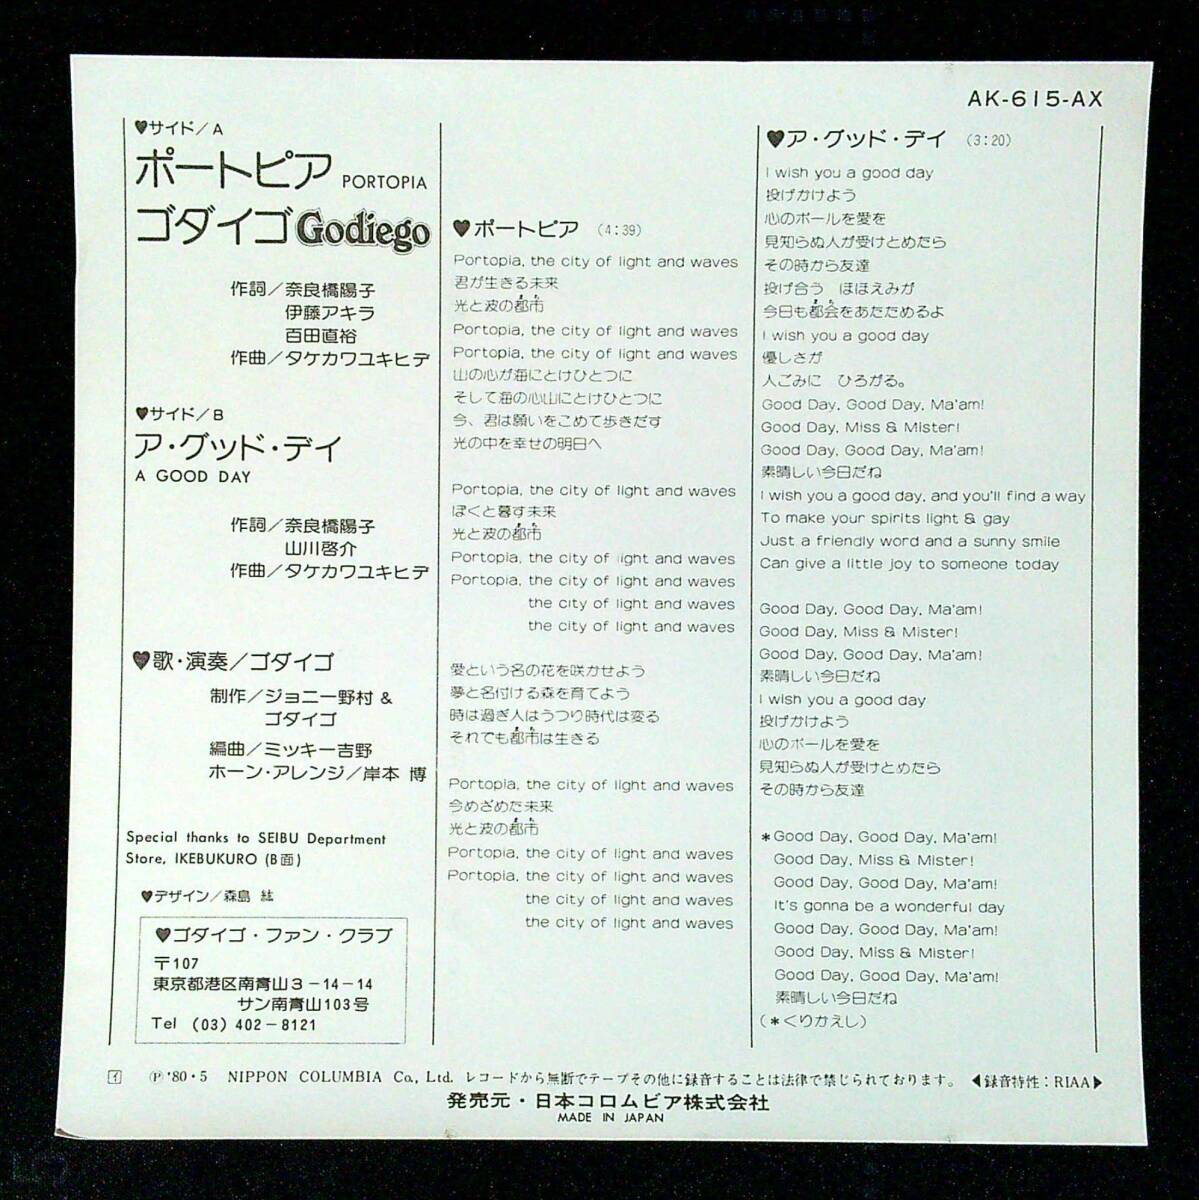 AK-615-AX
♥サイド/A
ポートピア PORTOPIA
ゴダイゴ Godiego
作詞/奈良橋陽子
伊藤アキラ
百田直裕
作曲/タケカワユキヒデ
♥サイド/B
ア・グッド・デイ
A GOOD DAY
作詞/奈良橋陽子
山川啓介
作曲/タケカワユキヒデ
♥歌・演奏/ゴダイゴ
制作/ジョニー野村 &
ゴダイゴ
編曲/ミッキー吉野
ホーン・アレンジ/岸本 博
Special thanks to SEIBU Department
Store, IKEBUKURO (B面)
♥デザイン/森島 紘
♥ゴダイゴ・ファン・クラブ
〒107
東京都港区南青山3-14-14
サン南青山103号
Tel (03) 402-8121
♥ポートピア (4:39)
Portopia, the city of light and waves
君が生きる未来
光と波の都市
Portopia, the city of light and waves
Portopia, the city of light and waves
山の心が海にとけひとつに
そして海の心山にとけひとつに
今、君は願いをこめて歩きだす
光の中を幸せの明日へ
Portopia, the city of light and waves
ぼくと暮す未来
光と波の都市
Portopia, the city of light and waves
Portopia, the city of light and waves
the city of light and waves
the city of light and waves
愛という名の花を咲かせよう
夢と名付ける森を育てよう
時は過ぎ人はうつり時代は変る
それでも都市は生きる
Portopia, the city of light and waves
今めざめた未来
光と波の都市
Portopia, the city of light and waves
Portopia, the city of light and waves
the city of light and waves
the city of light and waves
♥ア・グッド・デイ (3:20)
I wish you a good day
投げかけよう
心のボールを愛を
見知らぬ人が受けとめたら
その時から友達
投げ合う ほほえみが
今日も都会をあたためるよ
I wish you a good day
優しさが
人ごみに ひろがる。
Good Day, Good Day, Ma'am!
Good Day, Miss & Mister!
Good Day, Good Day, Ma'am!
素晴しい今日だね
I wish you a good day, and you'll find a way
To make your spirits light & gay
Just a friendly word and a sunny smile
Can give a little joy to someone today
Good Day, Good Day, Ma'am!
Good Day, Miss & Mister!
Good Day, Good Day, Ma'am!
素晴しい今日だね
I wish you a good day
投げかけよう
心のボールを愛を
見知らぬ人が受けとめたら
その時から友達
*Good Day, Good Day, Ma'am!
Good Day, Miss & Mister!
Good Day, Good Day, Ma'am!
It's gonna be a wonderful day
Good Day, Good Day, Ma'am!
Good Day, Miss & Mister!
Good Day, Good Day, Ma'am!
素晴しい今日だね
(*くりかえし)
イ Ⓟ '80・5 NIPPON COLUMBIA Co., Ltd. レコードから無断でテープその他に録音することは法律で禁じられております。 ◀録音特性:RIAA▶
発売元・日本コロムビア株式会社
MADE IN JAPAN